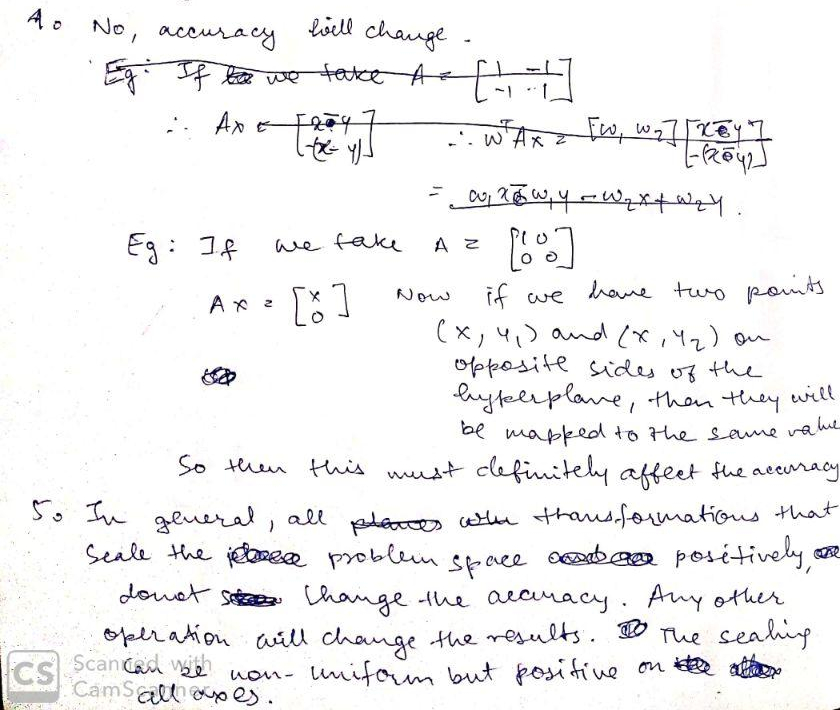 4. No, accuracy will change.
Eg: If we take A = [1 -1 -1 -1]
∴ Ax = [x-y -(x-y)] ∴ wᵀAx = [w₁ w₂] [x-y -(x-y)]
= w₁x - w₁y - w₂x + w₂y.
Eg: If we take A = [1 0 0 0]
Ax = [x 0] Now if we have two points
(x, y₁) and (x, y₂) on
opposite sides of the
hyperplane, then they will
be mapped to the same value
So then this must definitely affect the accuracy
5. In general, all planes transformations that
scale the problem space positively,
donot change the accuracy. Any other
operation will change the results. The scaling
can be non-uniform but positive on
all axes.
CS Scanned with
CamScanner